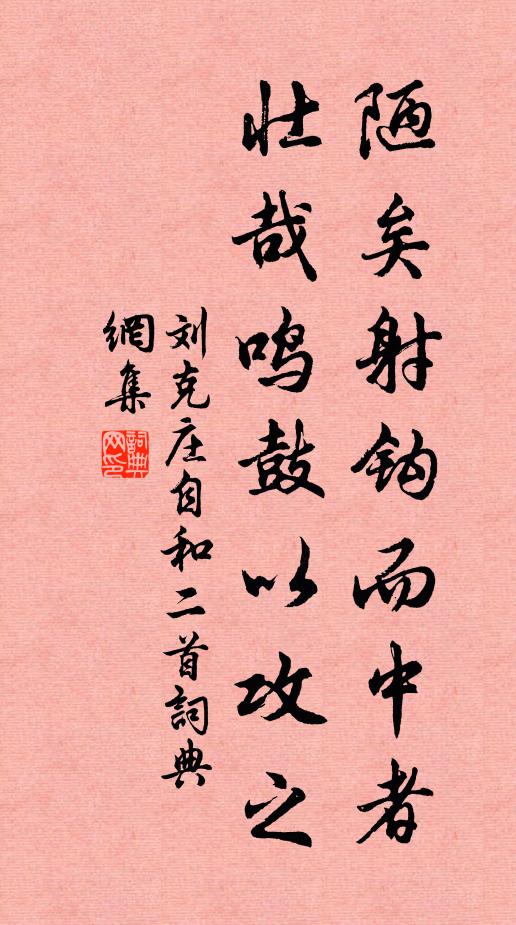 陋矣射钩而中者
壮哉鸣鼓以攻之
刘克庄自和二首詞典
網集
詞典
网印